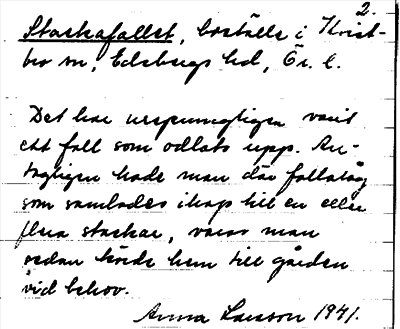 2.
Stackafallet, boställe i Kvist-
bro sn, Edsbergs hd, Ör. l.
Det har ursprungligen varit
ett fall som odlats upp. An-
tagligen hade man där
som samlades ihop till en eller
flera stackar, varav man
sedan körde hem till gården
vid behov.
Anna Larsson 1941.